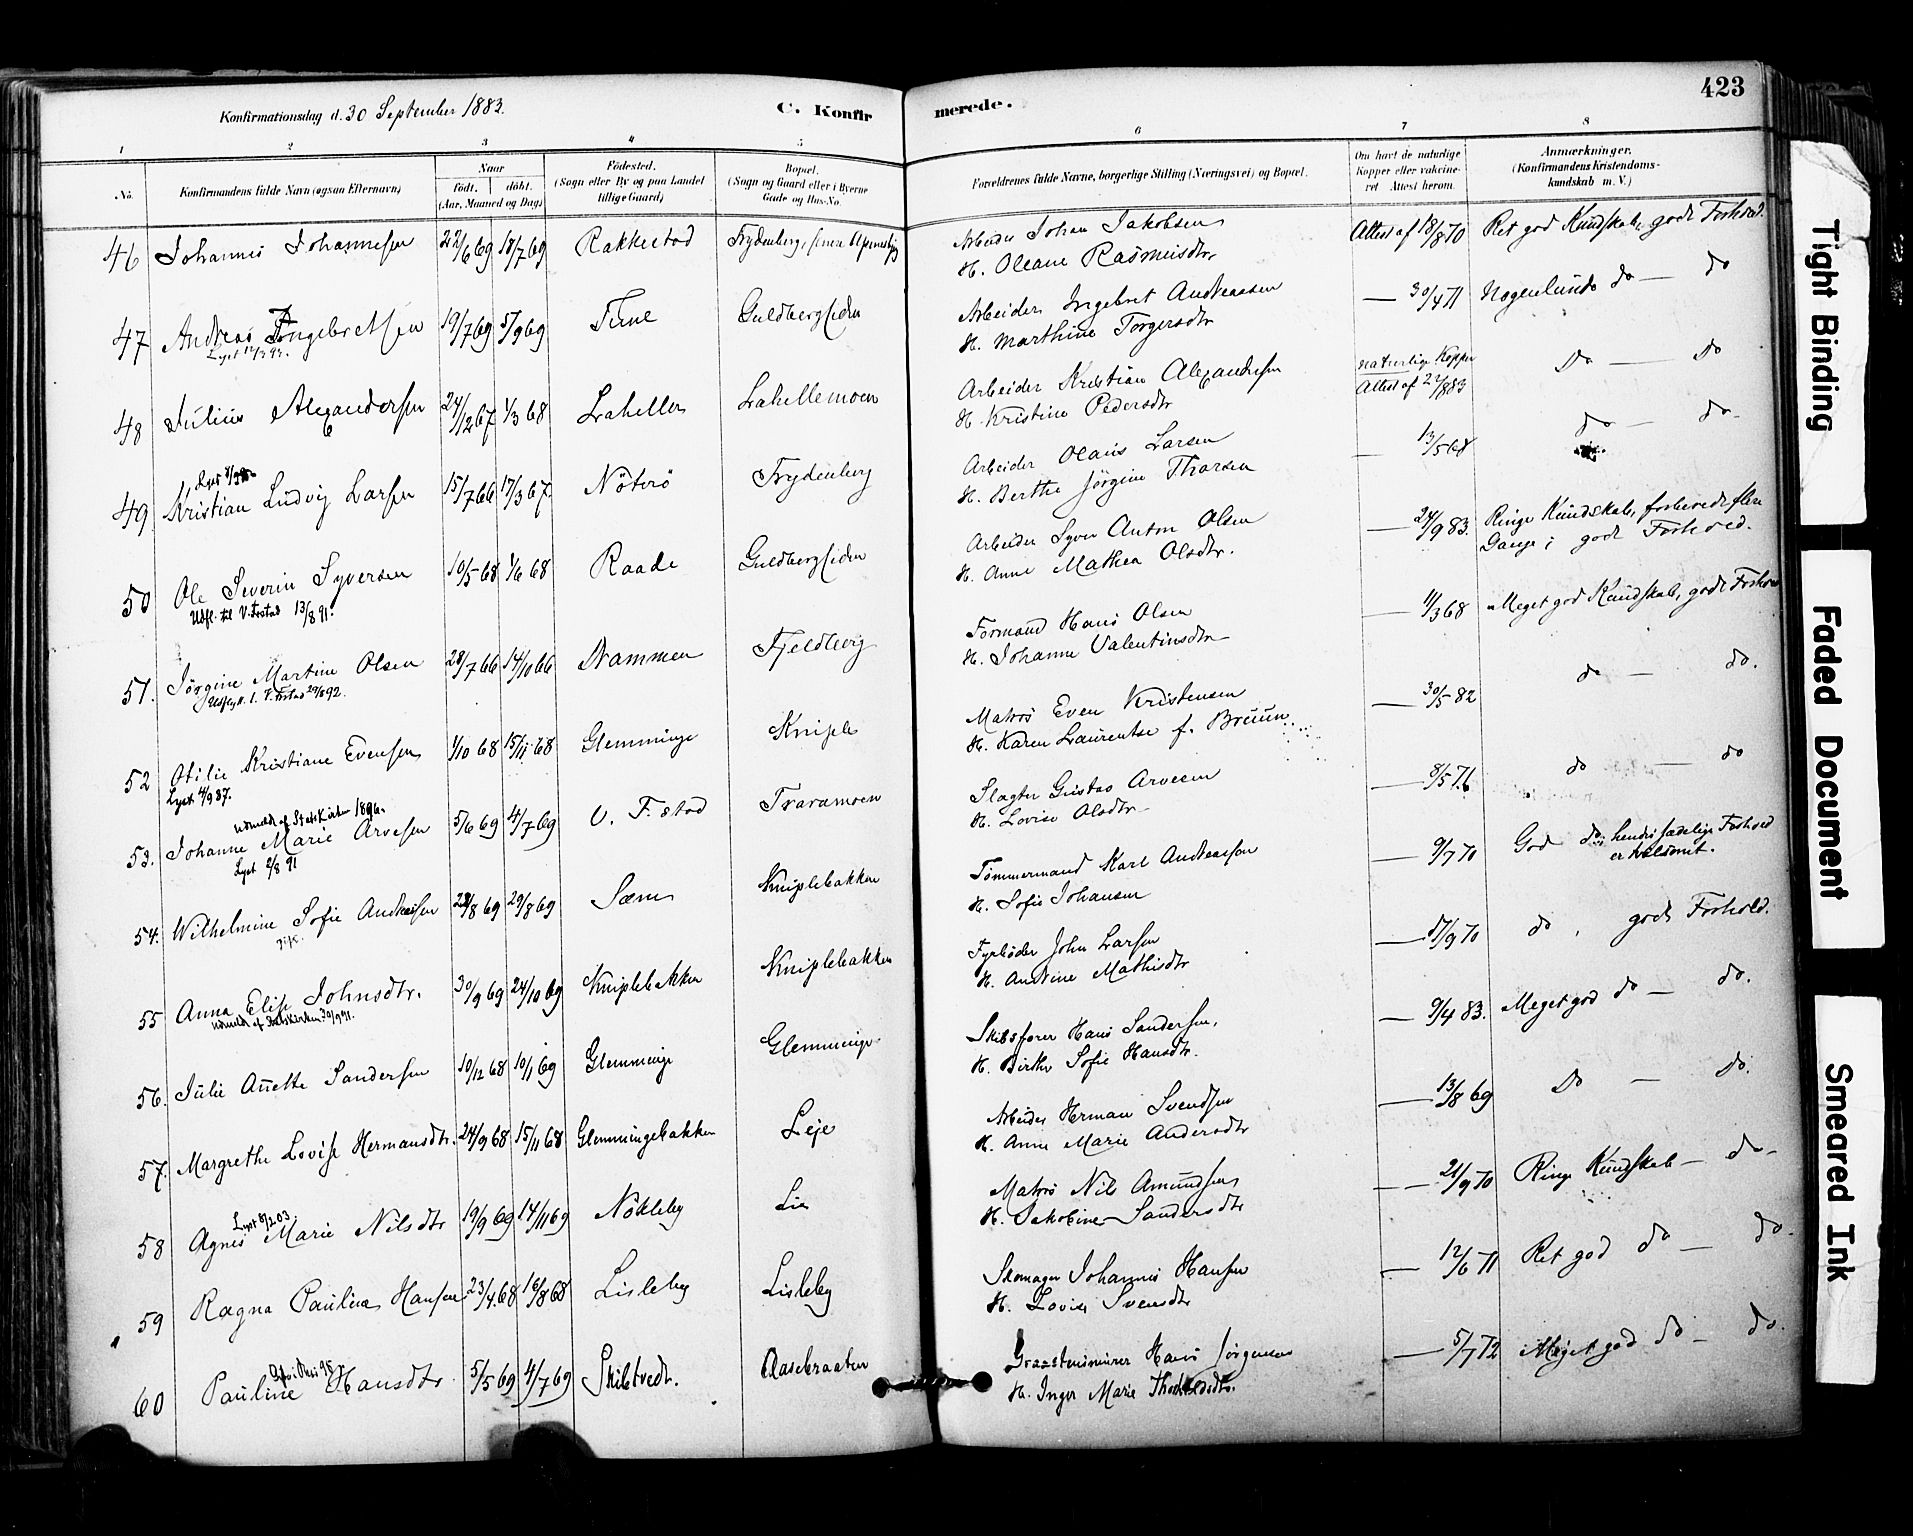 423
Konfirmationsdag d. 30 September 1883.
C. Konfir
merede.
1 2 3 4 5 6 7 8
No.
Konfirmandens fulde Navn (ogsaa Efternavn)
Naar
födt. döbt.
(Aar, Maaned og Dag)
Födested.
(Sogn eller By og paa Landet
tillige Gaard)
Bopæl.
(Sogn og Gaard eller i Byerne
Gade og Hus-No.
Forældrenes fulde Navne, borgerlige Stilling (Næringsvei) og Bopæl.
Om havt de naturlige
Kopper eller vaccine-
ret Attest herom.
Anmærkninger.
(Konfirmandens Kristendoms-
kundskab m. V.)
46 Johannes Johannesen 22/6 69 18/7 69 Rakkestad Frydenberg
Arbeider Johan Jakobsen Attest af 18/8 70 Ret god Kundskab, godt Forhold.
H. Oleane Rasmusdtr.
47 Andreas Ingebretsen 19/7 69 5/9 69 Tune Guldbergsiden
Arbeider Ingebret Andreassen — 30/4 71 Nogenlunde do — do
H. Marthine Torgersdtr
48 Julius Alexandersen 24/12 67 1/3 68 Lahellen Lahellemoen
Arbeider Kristian Alexandersen naturlige Kopper Do — Do
H. Kristine Pedersdtr Attest af 22/8 83
49 Kristian Ludvig Larsen 15/7 66 17/3 67. Nöterö Frydenberg
Arbeider Olaus Larsen — 13/5 68 do — do
H. Berthe Jörgine Thorsen
50 Ole Severin Syversen 10/5 68 1/6 68 Raade Guldbergsiden
Udfl. til V. Frstad 13/8 91.
Arbeider Syver Anton Olsen — 24/9 83. Ringe Kundskab, forberedt flere
H. Anne Mathea Olsdtr. Gange; godt Forhold.
51. Jörgine Martine Olsen 28/7 66 14/10 66 Drammen Fjeldberg
Formand Hans Olsen — 11/3 68 Meget god Kundskab, godt Forhold
H. Johanne Valentinsdtr
52 Otilie Kristiane Evensen 1/10 68 15/11 68 Glemminge Kniple
Lyst 4/9 87.
Matros Even Kristensen — 30/5 82 do — do.
H. Karen Laurentse f. Bruun
53. Johanne Marie Arvesen 5/6 69 4/7 69 V. F.stad Traramoen
udmeldt af Statskirken 1896.
Lyst 2/8 91
Slagter Gustav Arvesen — 8/5 76 do — do
H. Lovise Olsdtr
54. Wilhelmine Sofie Andreasen 28/8 69 29/8 69 Sarns Kniplebakken
Tömmermand Karl Andreassen — 9/7 70 God do; hendes sædelige Forhold
H. Sofie Johansen er tvilsomt.
55 Anna Elise Johnsdtr. 30/9 69 24/10 69 Kniplebakken Kniplebakken
udmeldt af Statskirken 30/9 91.
Fyrböder John Larsen — 17/9 70 do, godt Forhold.
H. Andrine Mathisdtr
56. Julie Anette Sandersen 10/12 68 10/1 69 Glemminge Glemminge
Skibsförer Hans Sandersen. — 9/4 83. Meget god do — do.
H. Birthe Sofie Hansdtr.
57. Margrethe Lovise Hermansdtr. 24/9 68 15/11 68 Glemmingebakken Leje
Arbeider Herman Svendsen — 13/8 69 Do — do.
H. Anne Marie Andersdtr
58 Agnes Marie Nilsdtr 19/9 69 14/11 69 Nökleby Lie
Lyst 8/2 03.
Matros Nils Amundsen — 21/9 70 Ringe Kundskab — do
H. Jakobine Sandersdtr
59 Ragna Pauline Hansen 23/4 68 16/8 68 Lisleby Lisleby
Skomager Johannes Hansen — 12/6 71 Ret god do — do.
H. Lovise Svensdtr
60 Pauline Hansdtr 5/5 69 4/7 69 Skibtvedt. Aasebraaten
Graastensmurer Hans Jörgensen — 5/7 72 Meget god do — do.
H. Inger Marie
Tight Binding
Faded Document
Smeared Ink